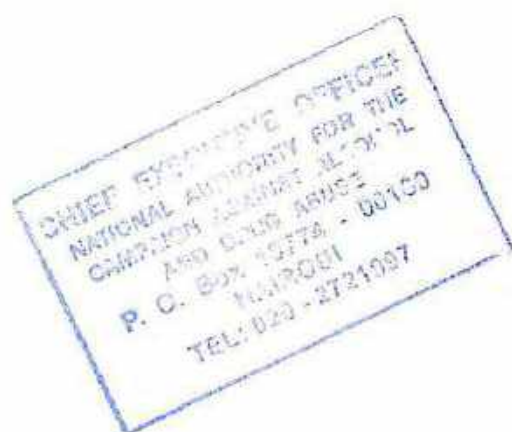 CHIEF EXECUTIVE OFFICER
NATIONAL AUTHORITY FOR THE
CAMPAIGN AGAINST ALCOHOL
AND DRUG ABUSE
P. O. Box - 00100
NAIROBI
TEL: 020 - 2721997